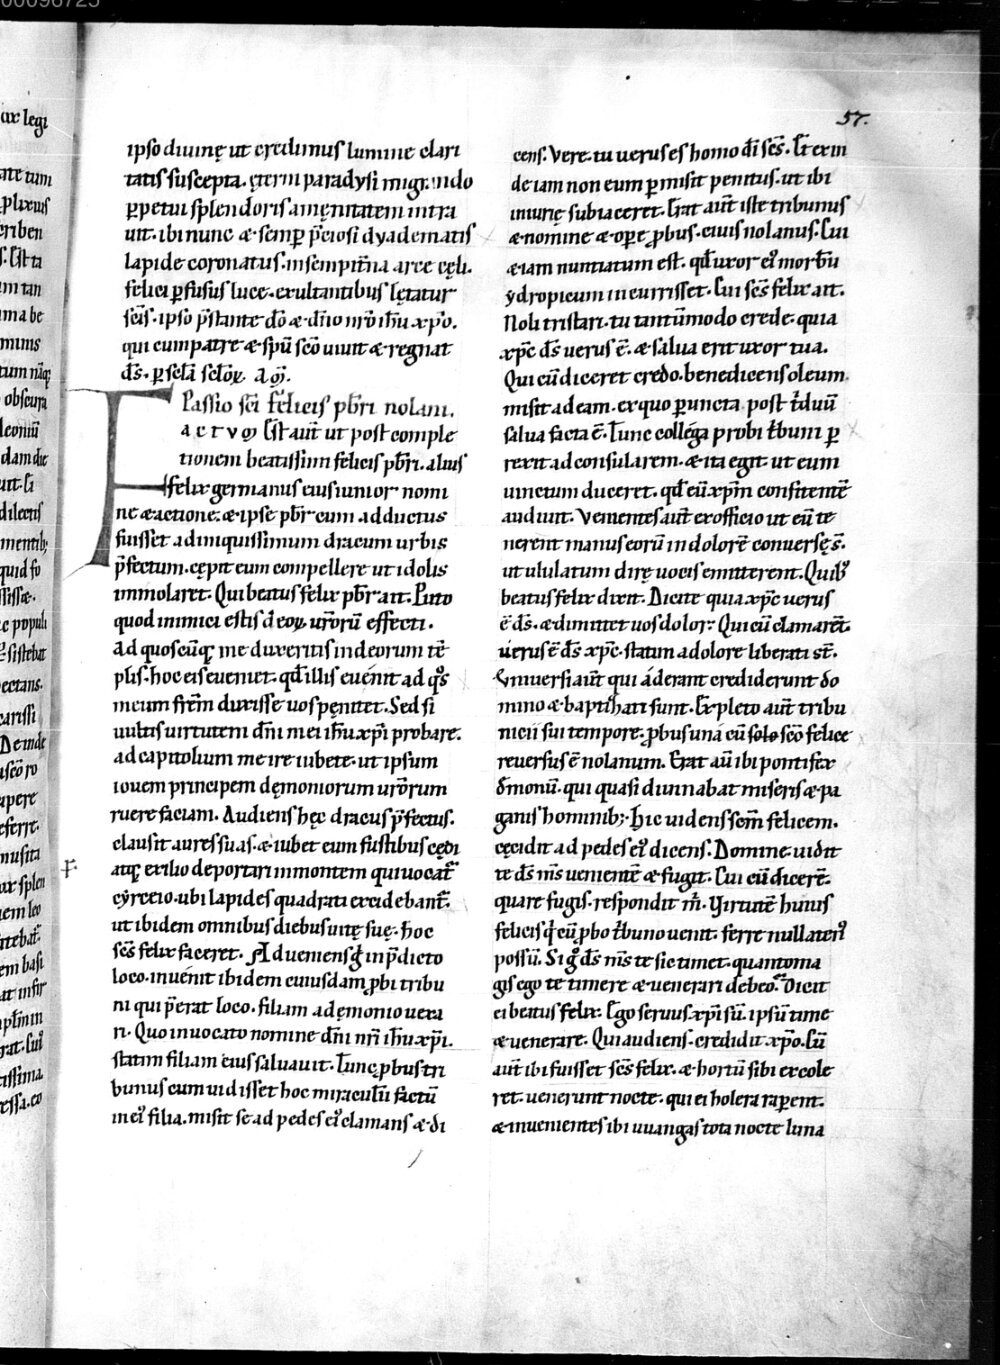 57.
ipso diuinę ut credimus lumine clari
tatis suscepta. ęterni paradysi migrando
ꝑpetui splendoris amęnitatem intra
uit. ibi nunc & semꝑ p̄ciosi dyadematis
lapide coronatus. in sempit̄na arce cęli.
felici ꝑfusus luce. exultantibus lętatur
sc̄is. ipso p̄stante dō & dn̄o nr̄o ih̄u xp̄o.
qui cum patre & sp̄u sc̄o uiuit & regnat
ds̄. ꝑ sc̄la sc̄loꝝ. am̄.
Passio sc̄i felicis pb̄ri nolani.
actum Est aut̄ ut post comple
tionem beatissimi felicis pb̄ri. alius
felix germanus eius iunior nomi
ne & actione. & ipse pb̄r cum adductus
fuisset ad iniquissimum dracum urbis
p̄fectum. cępit eum compellere ut idolis
immolaret. Qui beatus felix pb̄r ait. Puto
quod inimici estis deoꝝ ur̄orū effecti.
Ad quoscūq; me duxeritis in deorum tē
plis. hoc eis eueniet. qd̄ illis euenit ad qͦs
meum fr̄em duxisse uos pęnitet. Sed si
uultis uirtutem dn̄i mei ih̄u xp̄i probare.
ad capitolium me ire iubete. ut ipsum
iouem principem dęmoniorum ur̄orum
ruere faciam. Audiens hęc dracus p̄fectus.
clausit aures suas. & iubet eum fustibus cędi
atq; exilio deportari in montem qui uocat᷑
cyrceio. ubi lapides quadrati excidebant᷑.
ut ibidem omnibus diebus uitę suę. hoc
sc̄s felix faceret. Adueniens g̊ in p̄dicto
loco. inuenit ibidem cuiusdam ꝓbi tribu
ni qui p̄erat loco. filiam a demonio uexa
ri. Quo inuocato nomine dn̄i nr̄i ih̄u xp̄i.
statim filiam eius saluauit. Tunc ꝓbus tri
bunus cum uidisset hoc miraculū factū
in ei᷒ filia. misit se ad pedes ei᷒ clamans & di
cens. Vere tu uerus es homo dī sc̄s. Et exin
de iam non eum ꝑmisit penitus. ut ibi
iniurię subiaceret. Erat aut̄ iste tribunus
& nomine & oꝑe ꝓbus. ciuis nolanus. Cui
& iam nuntiatum est. qd̄ uxor ei᷒ morbū
ydropicum incurrisset. Cui sc̄s felix ait.
Noli tristari. tu tantūmodo crede. quia
xp̄c ds̄ uerus ē. & salua erit uxor tua.
Qui cū diceret credo. benedicens oleum
misit ad eam. ex quo ꝑuncta post t̄duū
salua facta ē. Tunc collega probi tb̄uni ꝑ
rexit ad consularem. & ita egit ut eum
uinctum duceret. qd̄ eū xp̄m confitentē
audiuit. Venientes aut̄ ex officio ut eū te
nerent manus eorū in dolorē conuersę s̄.
ut ululatum dirę uocis emitterent. Quib᷒
beatus felix dixit. Dicite quia xp̄c uerus
ē ds̄. & dimittet uos dolor. Qui cū clamarēt.
uerus ē ds̄ xp̄c. statim a dolore liberati st̄.
Vniuersi aut̄ qui aderant crediderunt do
mino & baptizati sunt. Expleto aut̄ tribu
nicii sui tempore. ꝓbus unā cū solo sc̄o felice
reuersus ē nolanum. Erat aū ibi pontifex
dm̄onū. qui quasi diuinabat miseris & pa
ganis hominib;. Hic uidens sc̄m felicem.
cęcidit ad pedes ei᷒ dicens. Domine. uidit
te ds̄ m̄s uenientē & fugit. Cui cū dicerē.
quare fugis. respondit m̄. Virtutē huius
felicis q̄ cū ꝓbo tb̄uno uenit. ferre nullaten᷒
possū. Si g̊ ds̄ m̄s te sic timet. quanto ma
gis ego te timere & uenerari debeo. Dicit
ei beatus felix. Ego seruus xp̄i sū. ipsū time
& uenerare. Qui audiens. credidit xp̄o. Cū
aut̄ ibi fuisset sc̄s felix. & hortū sibi excole
ret. uenerunt nocte. qui ei holera raꝑent.
& inuenientes ibi uuangas tota nocte luna